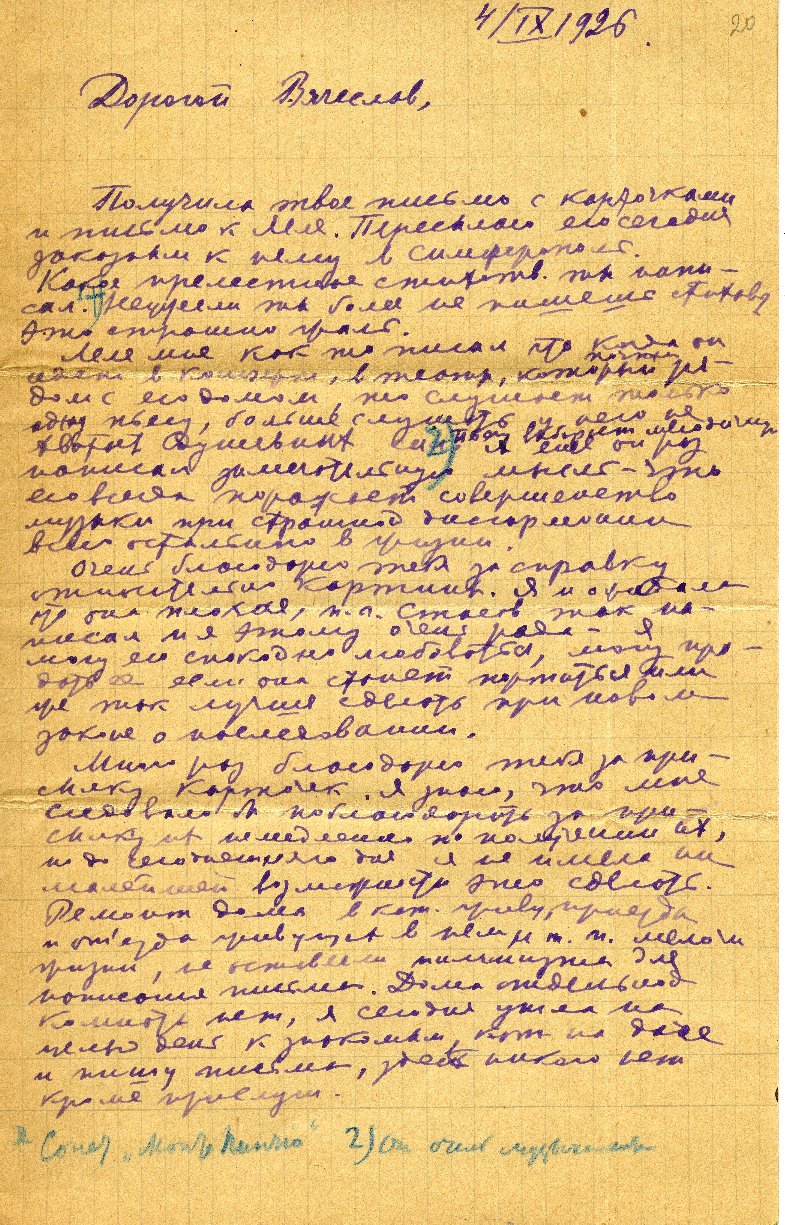 4/IX 1926.
20
Дорогой Вячеслав,
Получила твое письмо с карточками
и письмо к Леле. Пересылаю его сегодня
заказным к нему в Симферополь.
Какое прелестное стихотв. ты напи-
сал. Неужели ты более не пишешь стихов?
Это страшно жаль.
Леля мне как то писал что когда он
идет в концерт, в театр, который ря-
дом с его домом, то слушает только
одну пьесу, больше слушать у него не
хватает душевных сил 2) я еще он раз
написал замечательную мысль – что
его всегда поражает совершенство
музыки при страшной дисгармонии
всего остального в жизни.
Очень благодарю тебя за справку
относительно картины. Я и считала
что она плохая, т.п. Стасов так на-
писал и я этому очень рада – я
могу ею спокойно любоваться, могу про-
дать ее если она станет портиться или
же так лучше сделать при новом
законе о наследовании.
Много раз благодарю тебя за при-
сылку карточек. Я знаю, что мне
следовало б поблагодарить за при-
сылку их немедленно по получении их,
но до сегодняшнего дня я не имела ни
малейшей возможности это сделать.
Ремонт дома в кот. живу, приезда
и отъезда живущих в нем и т. п. мелочи
жизни, не оставили для
написания письма. Дома отдельной
комнаты нет, я сегодня ушла на
целый день к знакомым, кот. на даче
и пишу письма, здесь никого нет
кроме прислуги.
Сонет „Монте Пинчио“ 2) Он очень музыкален